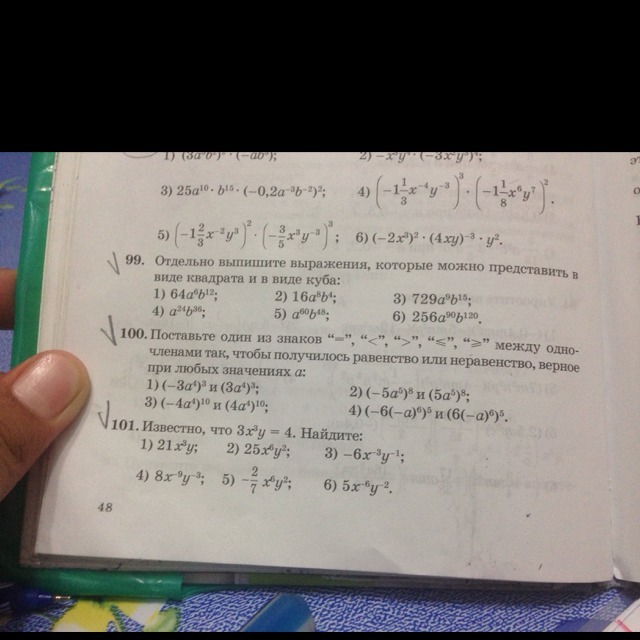 1) (3a⁶b²)³ · (−ab³); 2) −x³y⁴ · (−3x²y³)⁴;
3) 25a¹⁰ · b¹⁵ · (−0,2a⁻³b⁻²)²; 4) (−1 1/3 x⁻⁴y⁻³)³ · (−1 1/8 x⁶y⁷)².
5) (−1 2/3 x⁻²y³)² · (−3/5 x³y⁻³)³; 6) (−2x³)² · (4xy)⁻³ · y².
99. Отдельно выпишите выражения, которые можно представить в
виде квадрата и в виде куба:
1) 64a⁶b¹²; 2) 16a⁸b⁴; 3) 729a⁹b¹⁵;
4) a²⁴b³⁶; 5) a⁶⁰b⁴⁸; 6) 256a⁹⁰b¹²⁰.
100. Поставьте один из знаков “=”, “<”, “>”, “⩽”, “⩾” между одно-
членами так, чтобы получилось равенство или неравенство, верное
при любых значениях a:
1) (−3a⁴)³ и (3a⁴)³; 2) (−5a⁵)⁸ и (5a⁵)⁸;
3) (−4a⁴)¹⁰ и (4a⁴)¹⁰; 4) (−6(−a)⁶)⁵ и (6(−a)⁶)⁵.
101. Известно, что 3x³y = 4. Найдите:
1) 21x³y; 2) 25x⁶y²; 3) −6x⁻³y⁻¹;
4) 8x⁻⁹y⁻³; 5) −2/7 x⁶y²; 6) 5x⁻⁶y⁻².
48